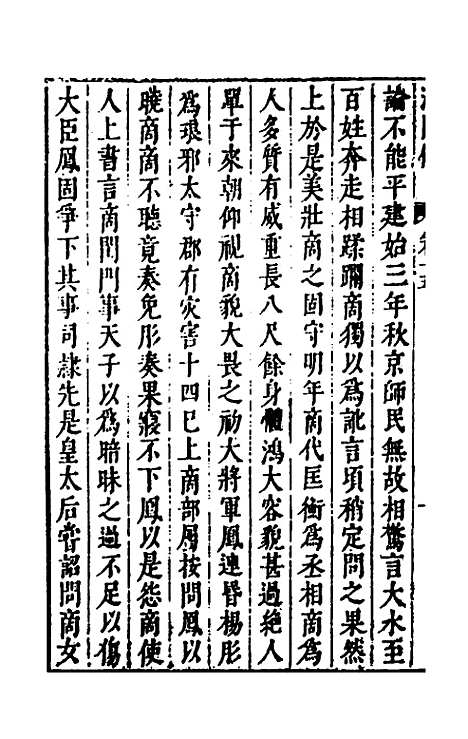 論不能平建始三年秋京師民無故相驚言大水至
百姓奔走相蹂躙商獨以為訛言頃稍定問之果然
上於是美壯商之固守明年商代匡衡為丞相商為
人多質有威重長八尺餘身體鴻大容貌甚過絕人
單于來朝仰視商貌大畏之初大將軍鳳連昏楊肜
為琅邪太守郡有灾害十四巳上商部屬按問鳳以
曉商商不聽竟奏免肜奏果寢不下鳳以是怨商使
人上書言商閨門事天子以為暗昧之過不足以傷
大臣鳳固爭下其事司隸先是皇太后嘗詔問商女